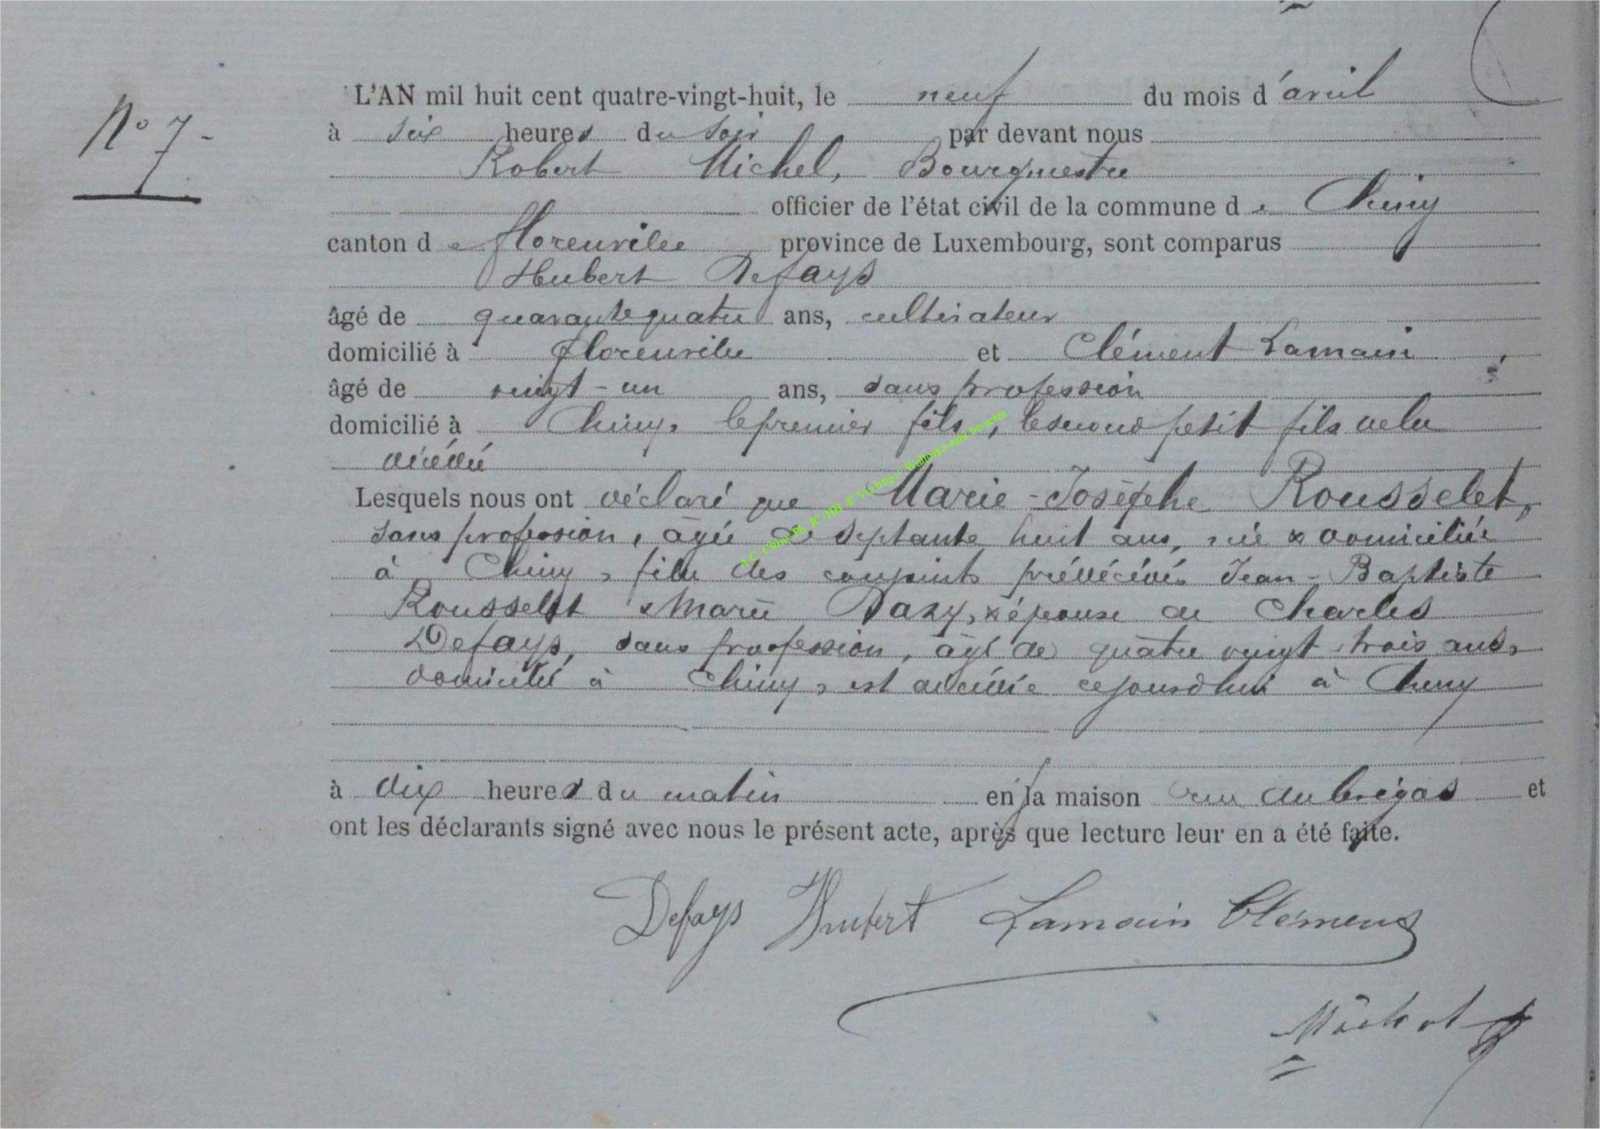 N° 7-
L'AN mil huit cent quatre-vingt-huit, le neuf du mois d'avril
à six heures du soir par devant nous
Robert Michel, Bourgmestre
officier de l'état civil de la commune de Chiny
canton de florenville province de Luxembourg, sont comparus
Hubert Defays
âgé de quarante quatre ans, cultivateur
domicilié à florenville et Clément Lamain
âgé de vingt-un ans, sans profession
domicilié à Chiny, le premier fils, le second petit fils de la
décédée
Lesquels nous ont déclaré que Marie-Josèphe Rousselet,
sans profession, âgée de septante huit ans, née & domiciliée
à Chiny, fille des conjoints prédécédés Jean-Baptiste
Rousselet & Marie Dazy, & épouse de Charles
Defays, sans profession, âgé de quatre vingt trois ans,
domicilié à Chiny, est décédée cejourd'hui à Chiny
à dix heures du matin en la maison rue et
ont les déclarants signé avec nous le présent acte, après que lecture leur en a été faite.
Defays Hubert Lamain Clément